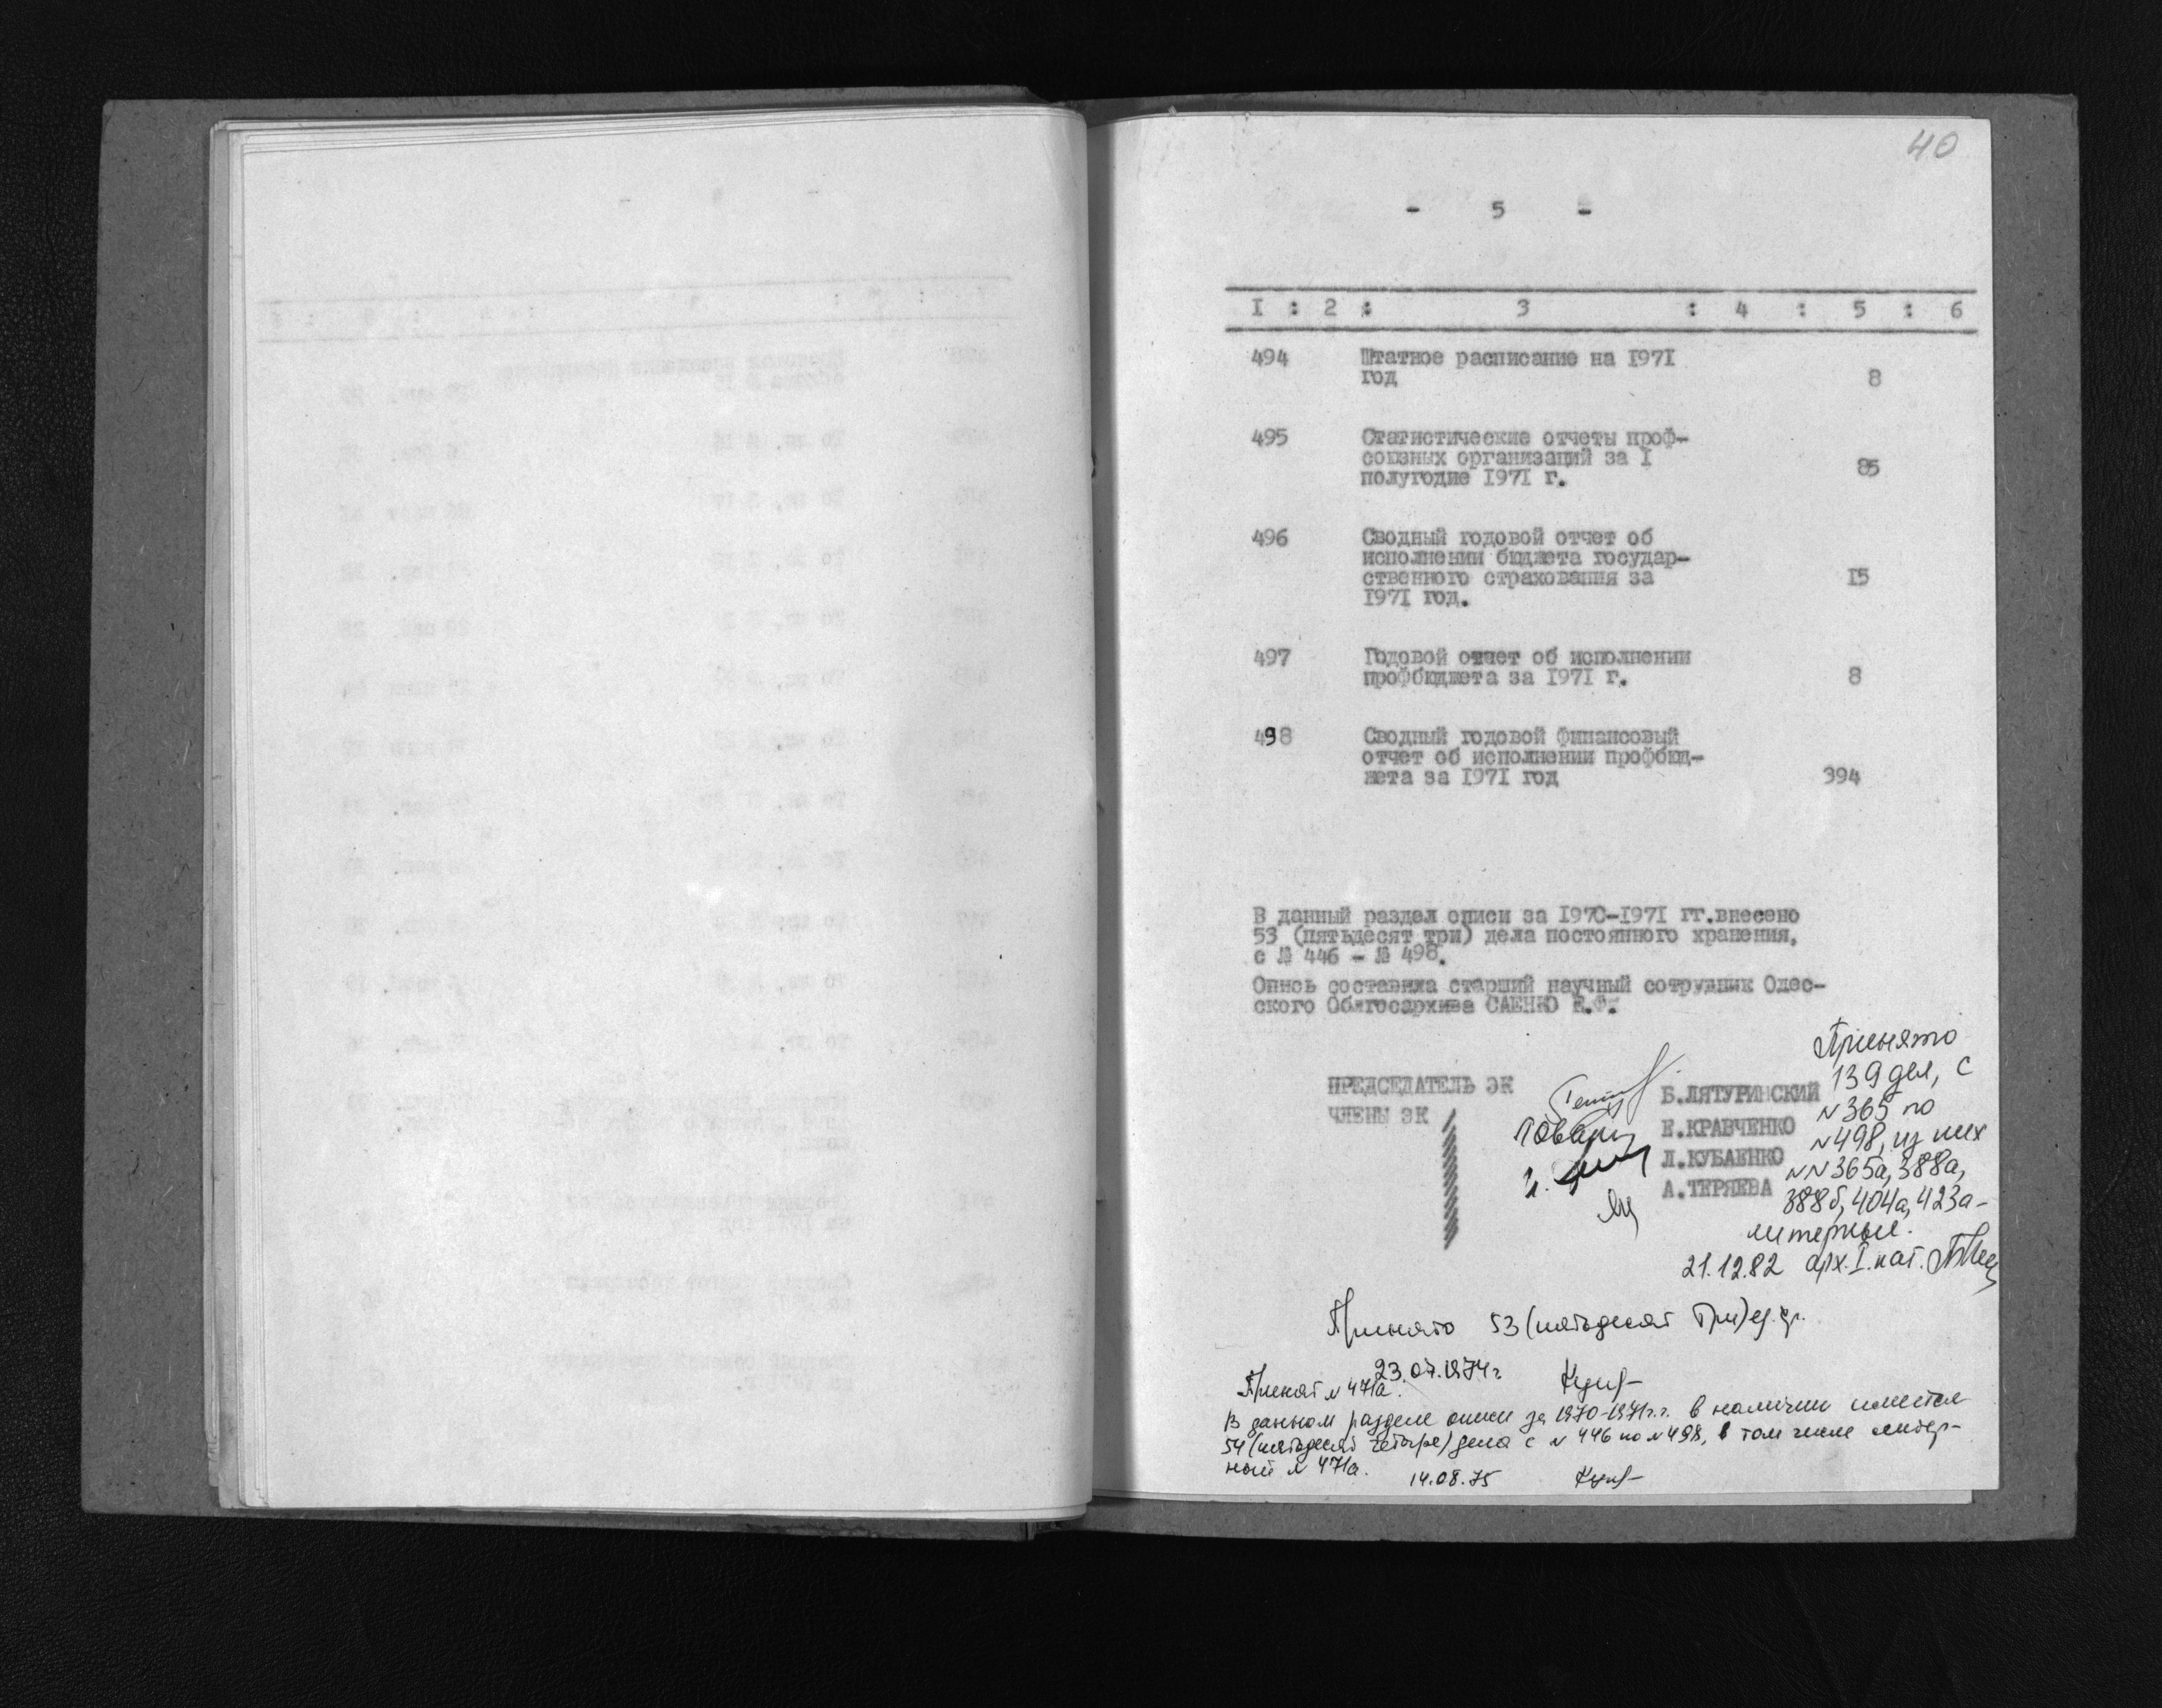 40
- 5 -
I : 2 : 3 : 4 : 5 : 6
494 Штатное расписание на 1971
год 8
495 Статистические отчеты проф-
союзных организаций за I
полугодие 1971 г. 85
496 Сводный годовой отчет об
исполнении бюджета государ-
ственного страхования за
1971 год. 15
497 Годовой отчет об исполнении
профбюджета за 1971 г. 8
498 Сводный годовой финансовый
отчет об исполнении профбюд-
жета за 1971 год 394
В данный раздел описи за 1970-1971 гг.внесено
53 (пятьдесят три) дела постоянного хранения,
с № 446 - № 498.
Опись составила старший научный сотрудник Одес-
ского Облгосархива САЕНКО Е.Ф.
ПРЕДСЕДАТЕЛЬ ЭК Б.ЛЯТУРИНСКИЙ
ЧЛЕНЫ ЭК Е.КРАВЧЕНКО
Л.КУБАЕНКО
А.ТЕРЯЕВА
Принято
139 дел, с
№365 по
№498, из них
№№365а, 388а,
388б, 404а, 423а-
литерные.
21.12.82 арх. I. кат.
Принято 53 (пятьдесят три) ед. хр.
23.07.1974г
Принят № 471а.
В данном разделе описи за 1970-1971г.г. в наличии имеется
54 (пятьдесят четыре) дела с № 446 по №498, в том числе литер-
ный № 471а.
14.08.75